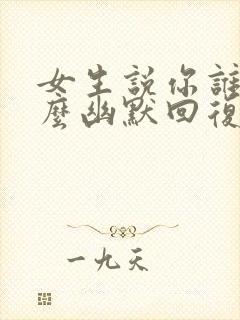 女生説你誰
麼幽默回復
一九天